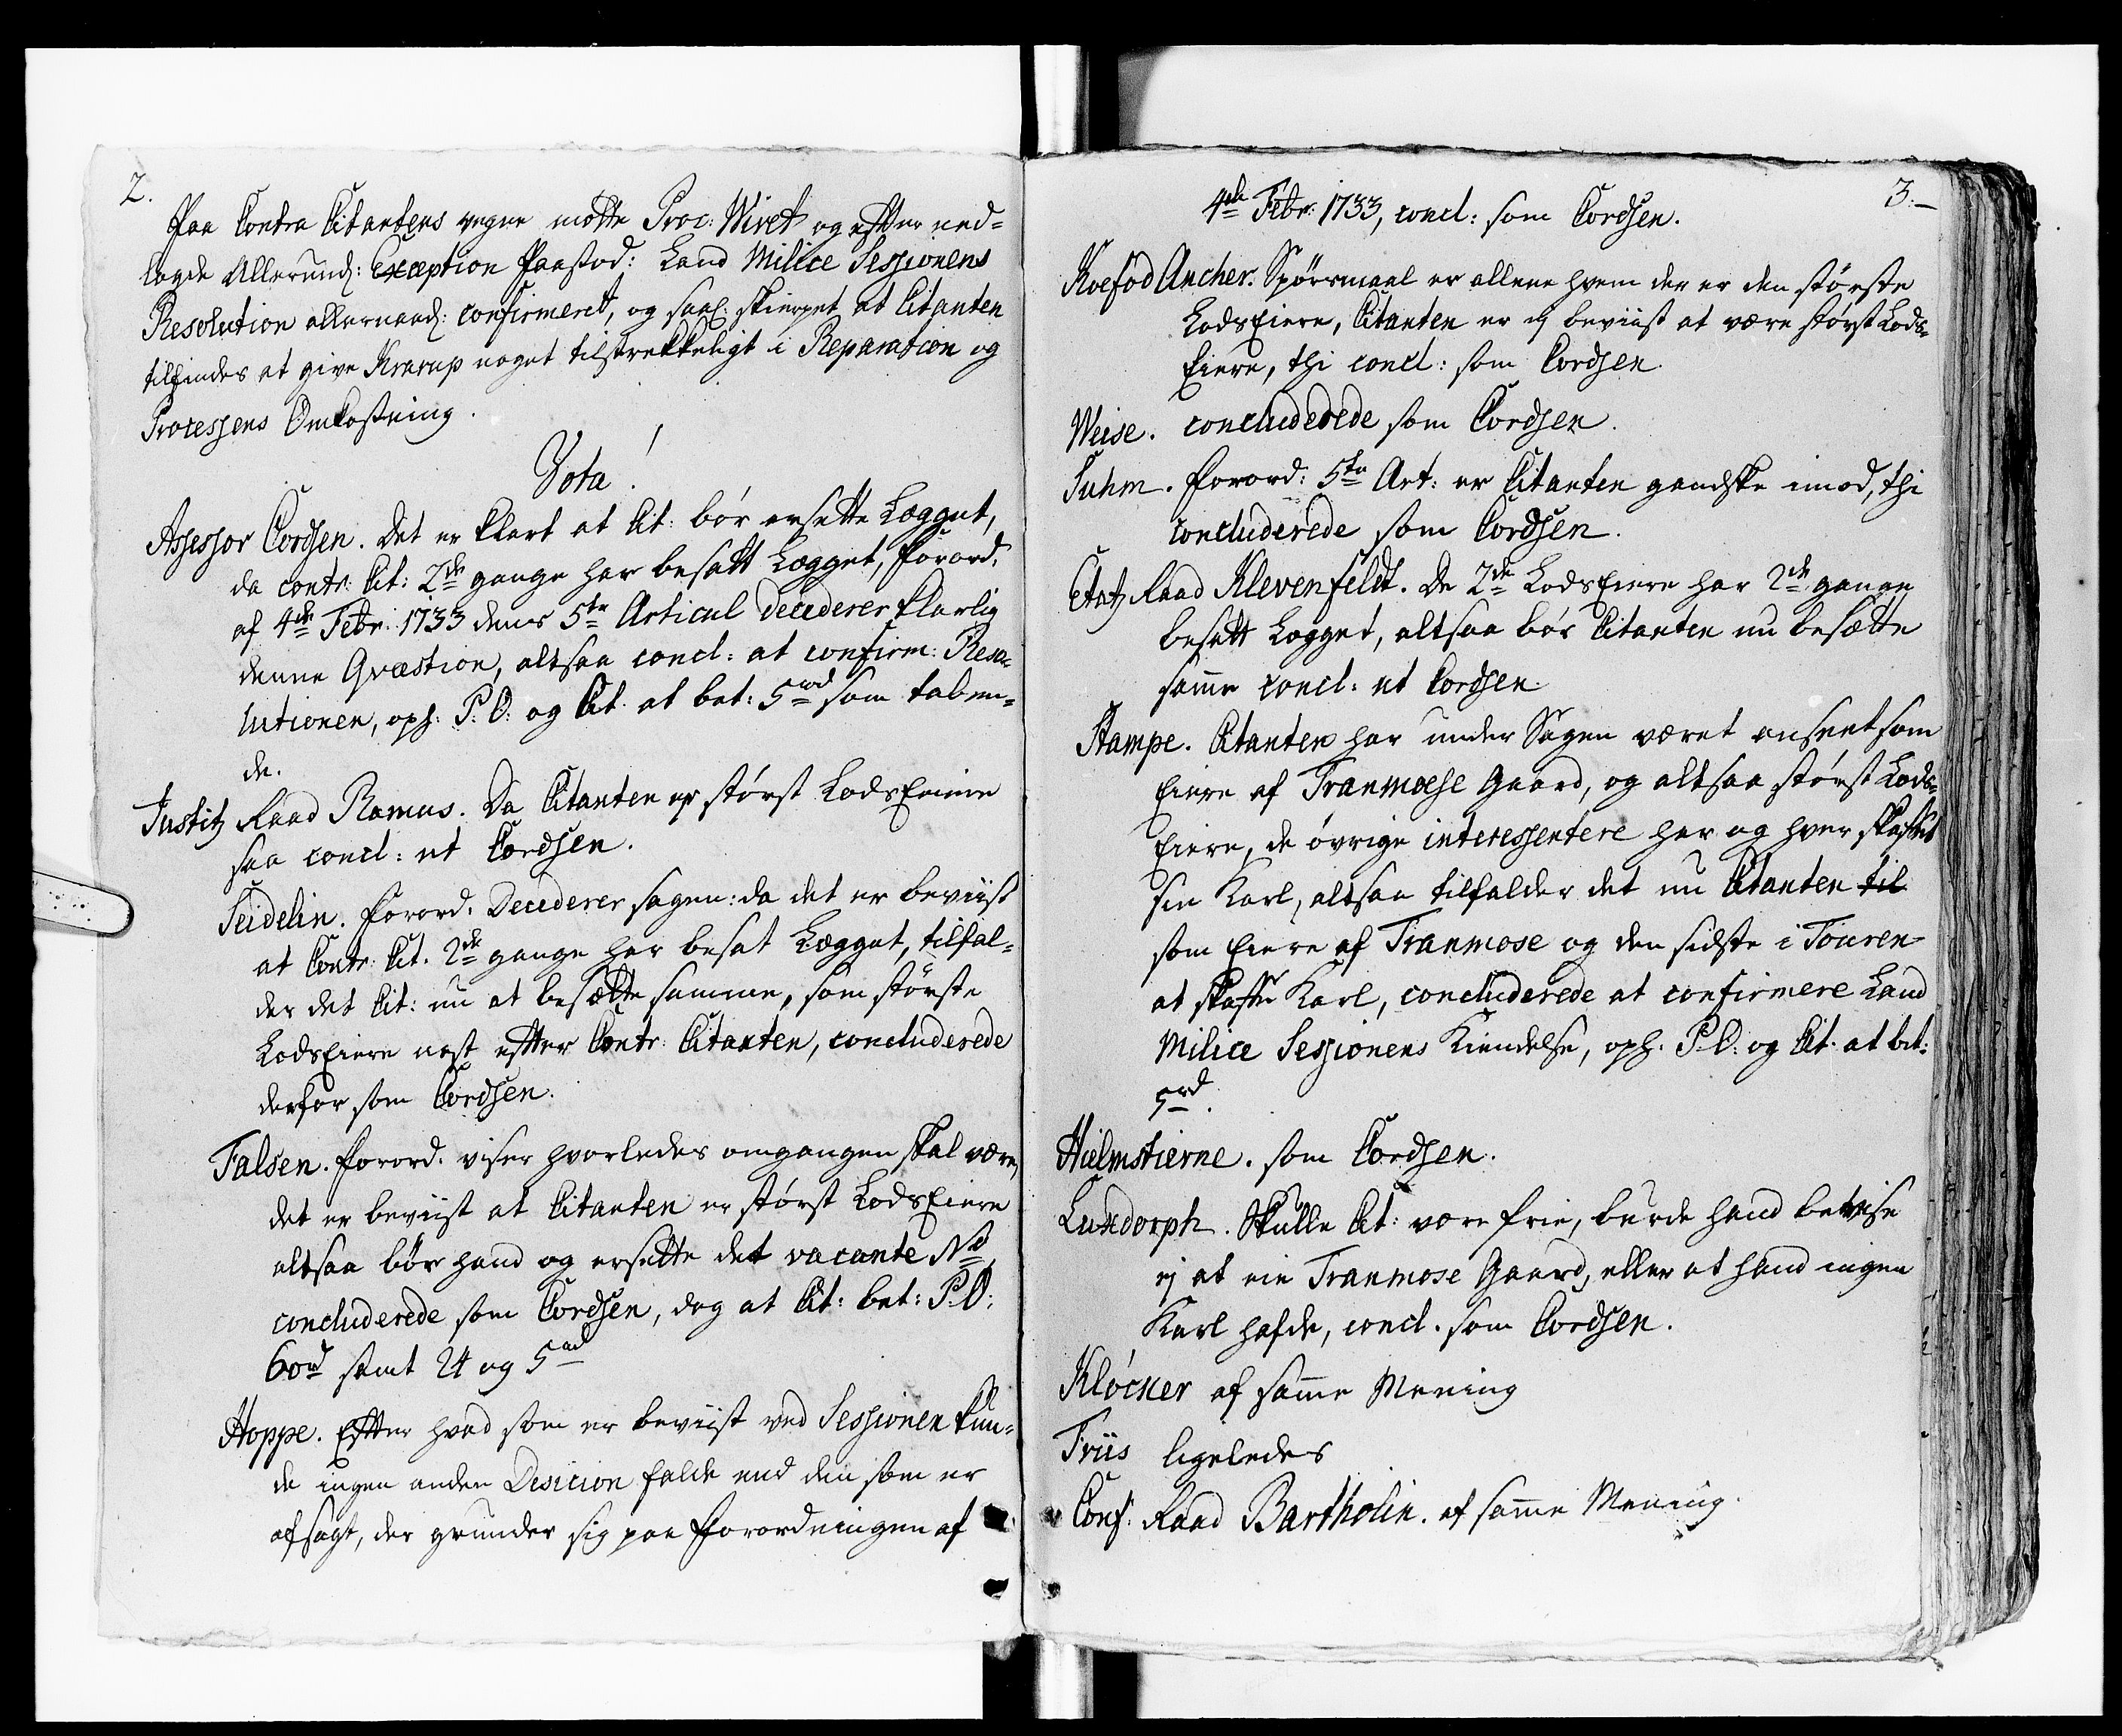 2.
Paa Contra Citantens vegne mötte Proc: Wiret og efter ned=
lagde Allerund: Exception Paastod: Land Milice Sessionens
Resolution allernaad: confirmeret, og saal: skierpet at Citanten
tilfindes at give Krarup noget tilstrekkeligt i Reparation og
Processens Omkostning.
Vota!
Assessor Cordsen. Det er klart at Cit: bör ersette Legget,
da contr: Cit: 2de gange har besatt Legget, Forord.
af 4de Febr: 1733 dens 5te Articul decederer klarlig
denne Qvæstion, altsaa concl: at confirm: Reso=
lutionen, oph: P: O: og Cit. at bet: 5rd som taben=
de.
Justitz Raad Ramus. Da Citanten er störst LodsEiere
saa concl: ut Cordsen.
Seidelin. Forord. Decederer sagen: da det er beviist
at Contr: Cit. 2de gange har besat Legget, tilfal=
der det Cit: nu at besætte samme, som störste
LodsEiere nest efter Contr: Citanten, concluderede
derfor som Cordsen.
Falsen. Forord. viser hvorledes omgangen skal være,
det er beviist at Citanten er störst LodsEiere
altsaa bör hand og ersette det vacante No,
concluderede som Cordsen, dog at Cit: bet: P: O:
60rd samt 24 og 5rd
Hoppe. Efter hvad som er beviist ved Sessionen kun=
de ingen anden Desicion falde end den som er
afsagt, der grunder sig paa Forordningen af
3.
4de Febr: 1733, concl: som Cordsen.
Koefod Ancher. Spörsmaal er allene hvem der er den störste
LodsEiere, Citanten er ej beviist at være störst Lods=
Eiere, thi concl: som Cordsen.
Weise. concluderede som Cordsen.
Suhm. Forord: 5te Art: er Citanten gandske imod, thi
concluderede som Cordsen.
Etatz Raad Klevenfeldt. De 2de LodsEiere har 2de gange
besatt Legget, altsaa bör Citanten nu besætte
samme concl: ut Cordsen.
Stampe. Citanten har under Sagen været anseet som
Eiere af Tranmose Gaard, og altsaa störst Lods=
Eiere, de övrige interessentere har og hver skaffet
sin Karl, altsaa tilfalder det nu Citanten til
som Eiere af Tranmose og den sidste i Touren
at skaffe Karl, concluderede at confirmere Land
Milice Sessionens Kiendelse, oph. P: O: og Cit. at bet:
5rd.
Hielmstierne. som Cordsen.
Luxdorph. Skulle Cit: være frie, burde hand bevise
ej at eie Tranmose Gaard, eller at hand ingen
Karl hafde, concl. som Cordsen.
Klöcker af samme Mening
Friis ligeledes
Conf: Raad Bartholin. af samme Mening.